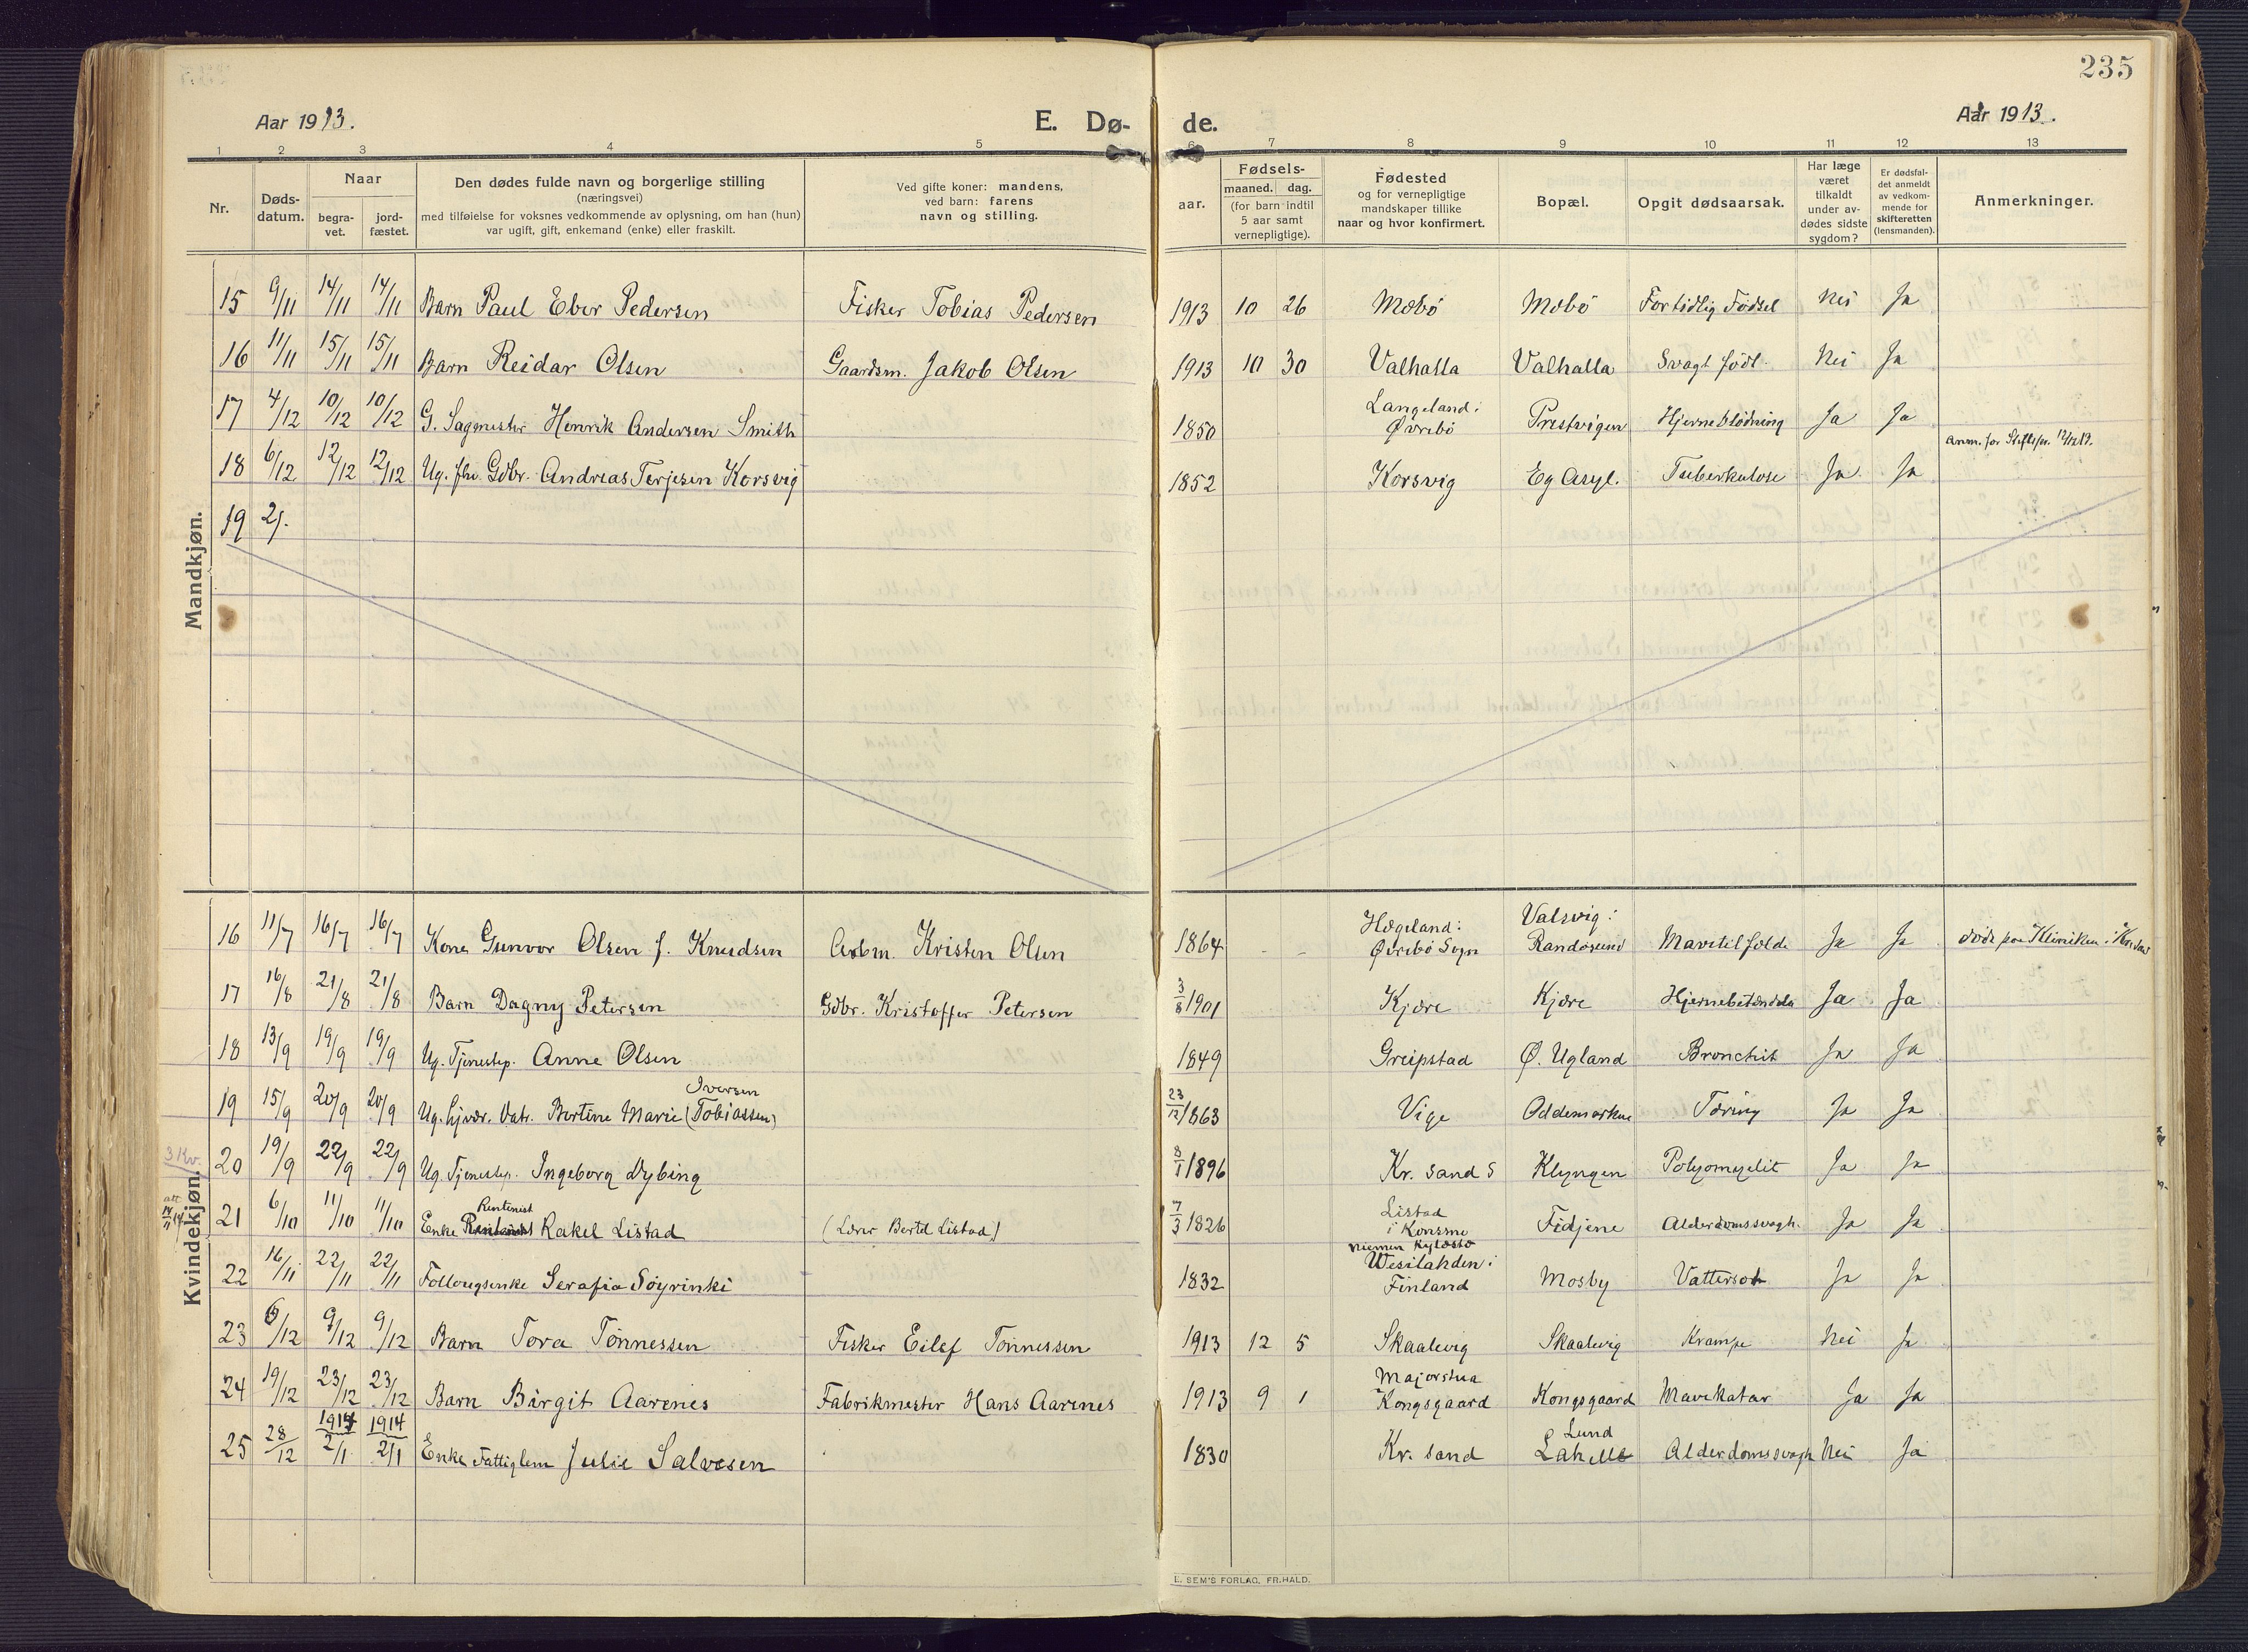 235
Aar 1913.
E. Dø-
de.
Aar 1913.
1 2 3 4 5 6 7 8 9 10 11 12 13
Nr.
Døds-
datum.
Naar
begra-
vet.
jord-
fæstet.
Den dødes fulde navn og borgerlige stilling
(næringsvei)
med tilføielse for voksnes vedkommende av oplysning, om han (hun)
var ugift, gift, enkemand (enke) eller fraskilt.
Ved gifte koner: mandens,
ved barn: farens
navn og stilling.
Fødsels-
aar.
maaned. dag.
(for barn indtil
5 aar samt
vernepligtige).
Fødested
og for vernepligtige
mandskaper tillike
naar og hvor konfirmert.
Bopæl.
Opgit dødsaarsak.
Har læge
været
tilkaldt
under av-
dødes sidste
sygdom?
Er dødsfal-
det anmeldt
av vedkom-
mende for
skifteretten
(lensmanden).
Anmerkninger.
Mandkjøn.
15 9/11 14/11 14/11 Barn Paul Eber Pedersen Fisker Tobias Pedersen 1913 10 26 Mæbö Mæbö For tidlig Födsel Nei Ja
16 11/11 15/11 15/11 Barn Reidar Olsen Gaardsm. Jakob Olsen 1913 10 30 Valhalla Valhalla Svagt födt. Nei Ja
17 4/12 10/12 10/12 G. Sagmester Henrik Andersen Smith 1850 Langeland i Øvrebö Prestvigen Hjerneblödning Ja Ja
18 6/12 12/12 12/12 Ug. fhv. Gdbr. Andreas Terjesen Korsvig 1852 Korsvig Eg Asyl. Tuberkulose Ja Ja
19
Kvindekjøn.
16 11/7 16/7 16/7 Kone Gunvor Olsen f. Knudsen Arbm. Kristen Olsen 1864 - - Hægeland i Øvrebö Sogn Valsvig i Randösund Mavetilfælde Ja Ja död paa Kliniken i
17 16/8 21/8 21/8 Barn Dagny Petersen Gdbr. Kristoffer Petersen 3/8 1901 Kjære Kjære Ja Ja
18 13/9 19/9 19/9 Ug. Tjenestep. Anne Olsen 1849 Greipstad Ø. Ugland Bronchit Ja Ja
19 15/9 20/9 20/9 Ug. Bertine Marie Iversen (Tobiassen) 23/12 1863 Vige Oddemarken Tæring Ja Ja
3 Kv.
20 19/9 22/9 22/9 Ug. Tjenestep. Ingeborg Dybing 3/1 1896 Kr. sand S Klyngen Polyomyelit Ja Ja
21 6/10 11/10 11/10 Enke Rentenist Rakel Listad (Lærer Bertel Listad) 7/3 1826 Listad i Konsmo Fidjene Alderdomssvagh. Ja Ja
22 16/11 22/11 22/11 Follougsenke Serafia Söyrinki 1832 Niemen Kylästö Wesilahden i Finland Mosby Vattersot Ja Ja
23 6/12 9/12 9/12 Barn Tora Tönnessen Fisker Eilef Tönnessen 1913 12 5 Skaalevig Skaalevig Krampe Nei Ja
24 19/12 23/12 23/12 Barn Birgit Aarenes Fabrikmester Hans Aarenes 1913 9 1 Majorstua Kongsgaard Kongsgaard Mavekatar Ja Ja
25 28/12 1914 2/1 1914 2/1 Enke Fattiglem Julie Salvesen 1830 Kr. sand Lund Lahelle Alderdomssvagh Nei Ja
E. SEM'S FORLAG, FR.HALD.